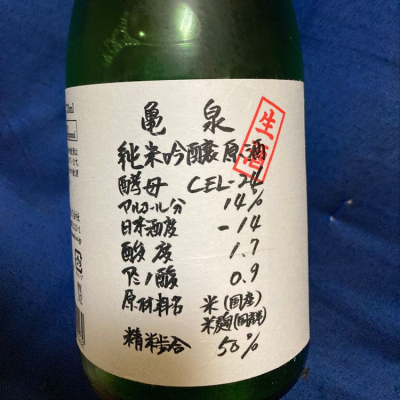 亀泉
生酒
純米吟醸原酒
酵母 CEL-24
アルコール分 14%
日本酒度 -14
酸度 1.7
アミノ酸 0.9
原材料名 米(国産)
米麹(国産米)
精米歩合 50%